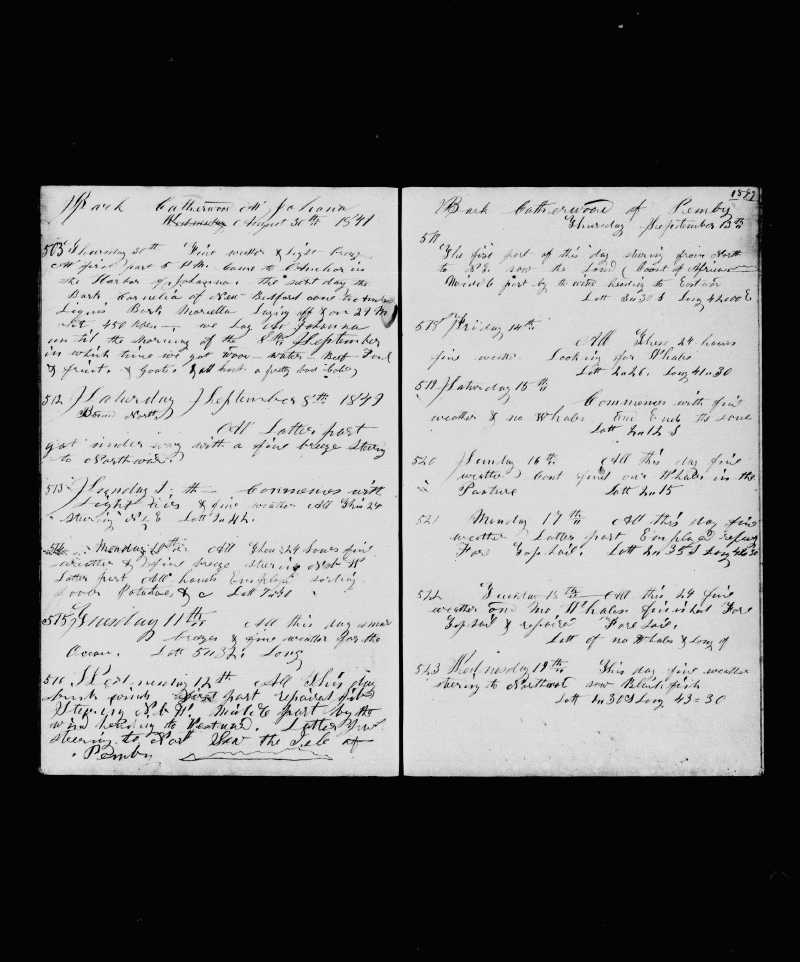 Bark Catherwood At Johana
Wednesday August 30th 1849
503 Thursday 30th Fine wether & light breze
At first part 5 P.M. Came to Anchor in
the Harbor of Johanna. the next day the
Bark Cornelia of New Bedford came
Bark Marcella Laying off & on 27 M
out 450 bbls we Lay at Johanna
until the morning of the 8th September
in which time we got Wood water Beef
& fruit & Goats
512 Saturday September 8th 1849
Bound North
All Latter part
got under way with a fine breeze stering
to Northward
513 Sunday 9th Commences with
Light airs & fine weather All this 24
stering N.b E Latt
514 Monday 10th All these 24 hours fine
weather & fine breeze stering
Latter part All hands Employed sorting
over Potatoes & c Latt
515 Tuesday 11th All this day smar
breezes & fine weather for the
Ocean. Latt 5" 32 Long
516 Wednesday 12th All this day
part repaired
Stering Midle part by the
wind heading to Westward. Latter
steering to Nort Saw the Isle of
Pemby
1849
Bark Catherwood of Pemby
Thursday September 13th
517
The first part of this day stering from North
to N.E. saw the Land (Coast of African
Middle part by the wind heading to Eastward
Latt 3" 30 S Long 42"00 E
518 Friday 14th
All these 24 hours
fine weather Looking for Whales
Latt 2"26. Long 41"30
519 Saturday 15th
Commences with fine
weather & no Whales true Ends the same
Latt 2"12 S
520 Sunday 16th All this day fine
weather Cant find our Whales in the
Pasture Latt 2"15
521 Monday 17th All this day fine
weather Latter part Employed
Fore Topsail. Latt 2" 35 S Long
522 Tuesday 18th All this 24 fine
weather and no Whales finished Fore
Topsail & repaired Fore Sail.
Latt of no Whales & Long of
523 Wednesday 19th This day fine weather
stering to Northwst saw Blackfish
Latt 2" 30 S Long 43=30